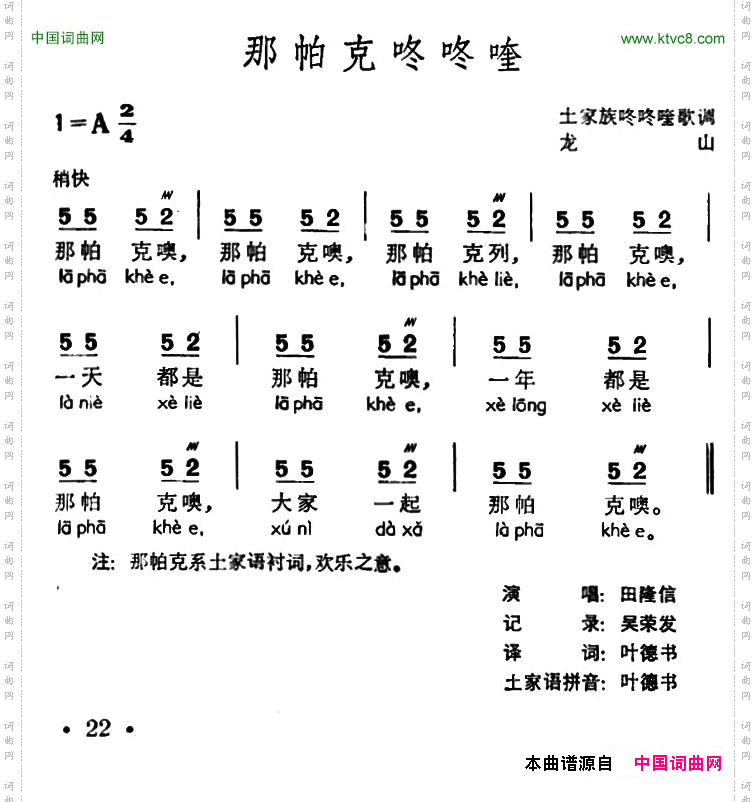 中国词曲网
www.ktvc8.com
那帕克咚咚喹
1=A 2/4
土家族咚咚喹歌调
龙山
稍快
5 5 5 2 | 5 5 5 2 | 5 5 5 2 | 5 5 5 2 |
那帕 克噢, 那帕 克噢, 那帕 克列, 那帕 克噢,
lāphā khè e, lāphā khè e, lāphā khè liè, lāphā khè e,
5 5 5 2 | 5 5 5 2 | 5 5 5 2 |
一天 都是 那帕 克噢, 一年 都是
là niè xè liè lāphā khè e, xè lōng xè liè
5 5 5 2 | 5 5 5 2 | 5 5 5 2 ‖
那帕 克噢, 大家 一起 那帕 克噢。
lāphā khè e, xú nì dà xǎ làphā khè e。
注: 那帕克系土家语衬词,欢乐之意。
演唱: 田隆信
记录: 吴荣发
译词: 叶德书
土家语拼音: 叶德书
· 22 ·
本曲谱源自 中国词曲网
词曲网